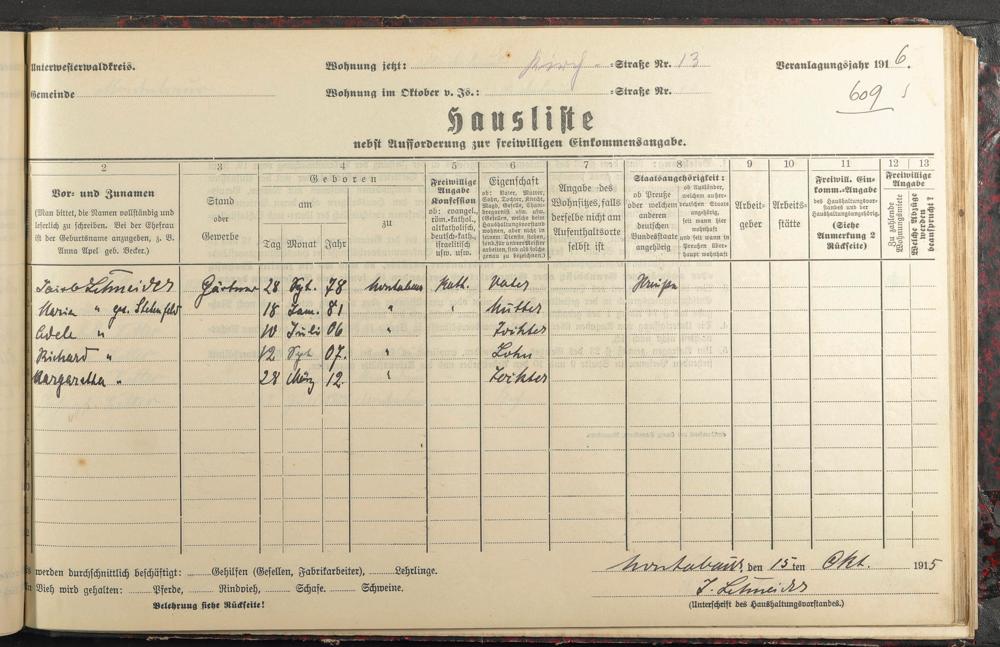 Unterwesterwaldkreis. Wohnung jetzt: Kirch- -Straße Nr. 13 Veranlagungsjahr 1916.
Gemeinde Wohnung im Oktober v. Js.: -Straße Nr. 609
Hausliste
nebst Aufforderung zur freiwilligen Einkommensangabe.
2 3 4 5 6 7 8 9 10 11 12 13
Vor- und Zunamen
(Man bittet, die Namen vollständig und
leserlich zu schreiben. Bei der Ehefrau
ist der Geburtsname anzugeben, z. B.
Anna Apel geb. Becker.)
Stand
oder
Gewerbe
Geboren
am zu
Tag Monat Jahr
Freiwillige
Angabe
Konfession
ob: evangel.,
röm.-kathol.,
altkatholisch,
deutsch-kath.,
israelitisch
usw. usw.
Eigenschaft
ob: Vater, Mutter,
Sohn, Tochter, Knecht,
Magd, Geselle, Cham-
bregarnist usw. usw.
Angabe des
Wohnsitzes, falls
derselbe nicht am
Aufenthaltsorte
selbst ist
Staatsangehörigkeit:
ob Preuße
oder welchem
anderen
deutschen
Bundesstaate
angehörig
ob Ausländer,
welchem außer-
deutschen Staate
angehörig,
seit wann hier
wohnhaft
und seit wann in
Preußen über-
haupt wohnhaft
Arbeit-
geber
Arbeits-
stätte
Freiwill. Ein-
komm.-Angabe
des Haushaltungsvor-
standes und der
Haushaltungsangehörig.
(Siehe
Anmerkung 2
Rückseite)
Freiwillige
Angabe
Zu zahlende
Wohnungsmiete
Welche Abzüge
werden
beansprucht?
Jakob Schneider Gärtner 28 Sept. 78 Montabaur Kath. Vater Preußen
Maria " geb. 18 Jan. 81 " " Mutter
Adele " 10 Juli 06 " Tochter
Richard " 12 Sept 07. " Sohn
Margaretha " 28 März 12. " Tochter
werden durchschnittlich beschäftigt: Gehilfen (Gesellen, Fabrikarbeiter), Lehrlinge.
Vieh wird gehalten: Pferde, Rindvieh, Schafe. Schweine.
Belehrung siehe Rückseite!
Montabaur, den 15 ten Okt. 1915
J. Schneider
(Unterschrift des Haushaltungsvorstandes.)